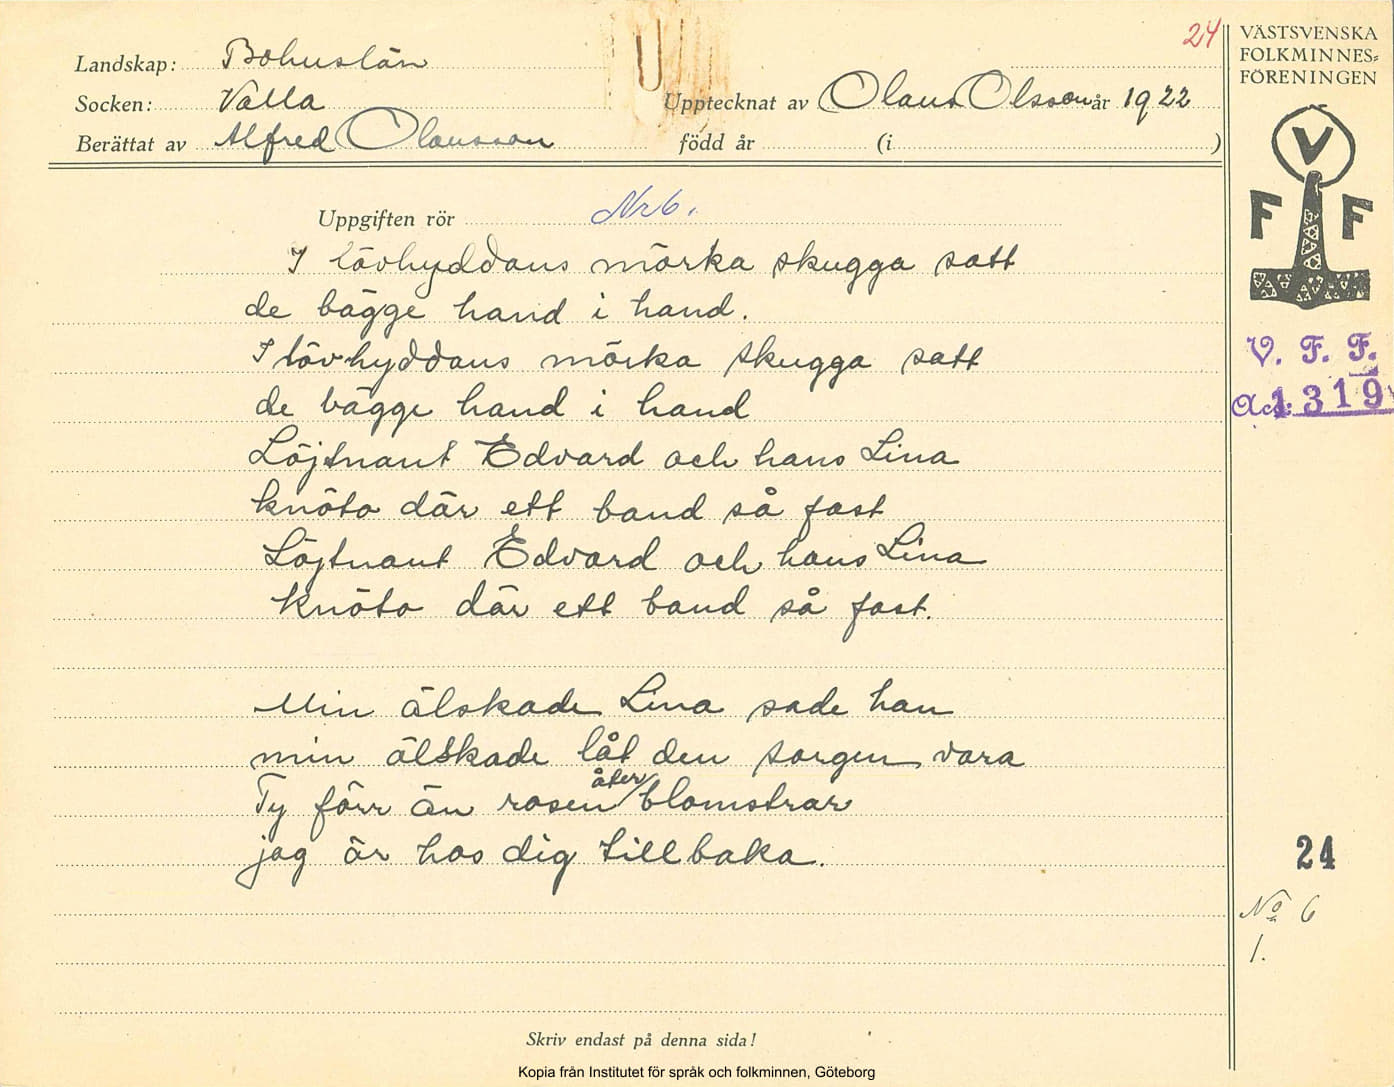 24
Landskap: Bohuslän
Socken: Valla
Upptecknat av Olaus Olsson år 1922
Berättat av Alfred Olausson
född år (i )
Uppgiften rör Nr 6.
I lövhyddans mörka skugga satt
de bägge hand i hand.
I lövhyddans mörka skugga satt
de bägge hand i hand
Löjtnant Edvard och hans Lina
knöto där ett band så fast
Löjtnant Edvard och hans Lina
knöto där ett band så fast.
Min älskade Lina sade han
min älskade låt den sorgen vara
Ty förr än rosen åter blomstrar
jag är hos dig tillbaka.
Skriv endast på denna sida!
VÄSTSVENSKA
FOLKMINNES-
FÖRENINGEN
V
F F
V. F. F.
Acc: 1319
24
No 6
1.
Kopia från Institutet för språk och folkminnen, Göteborg